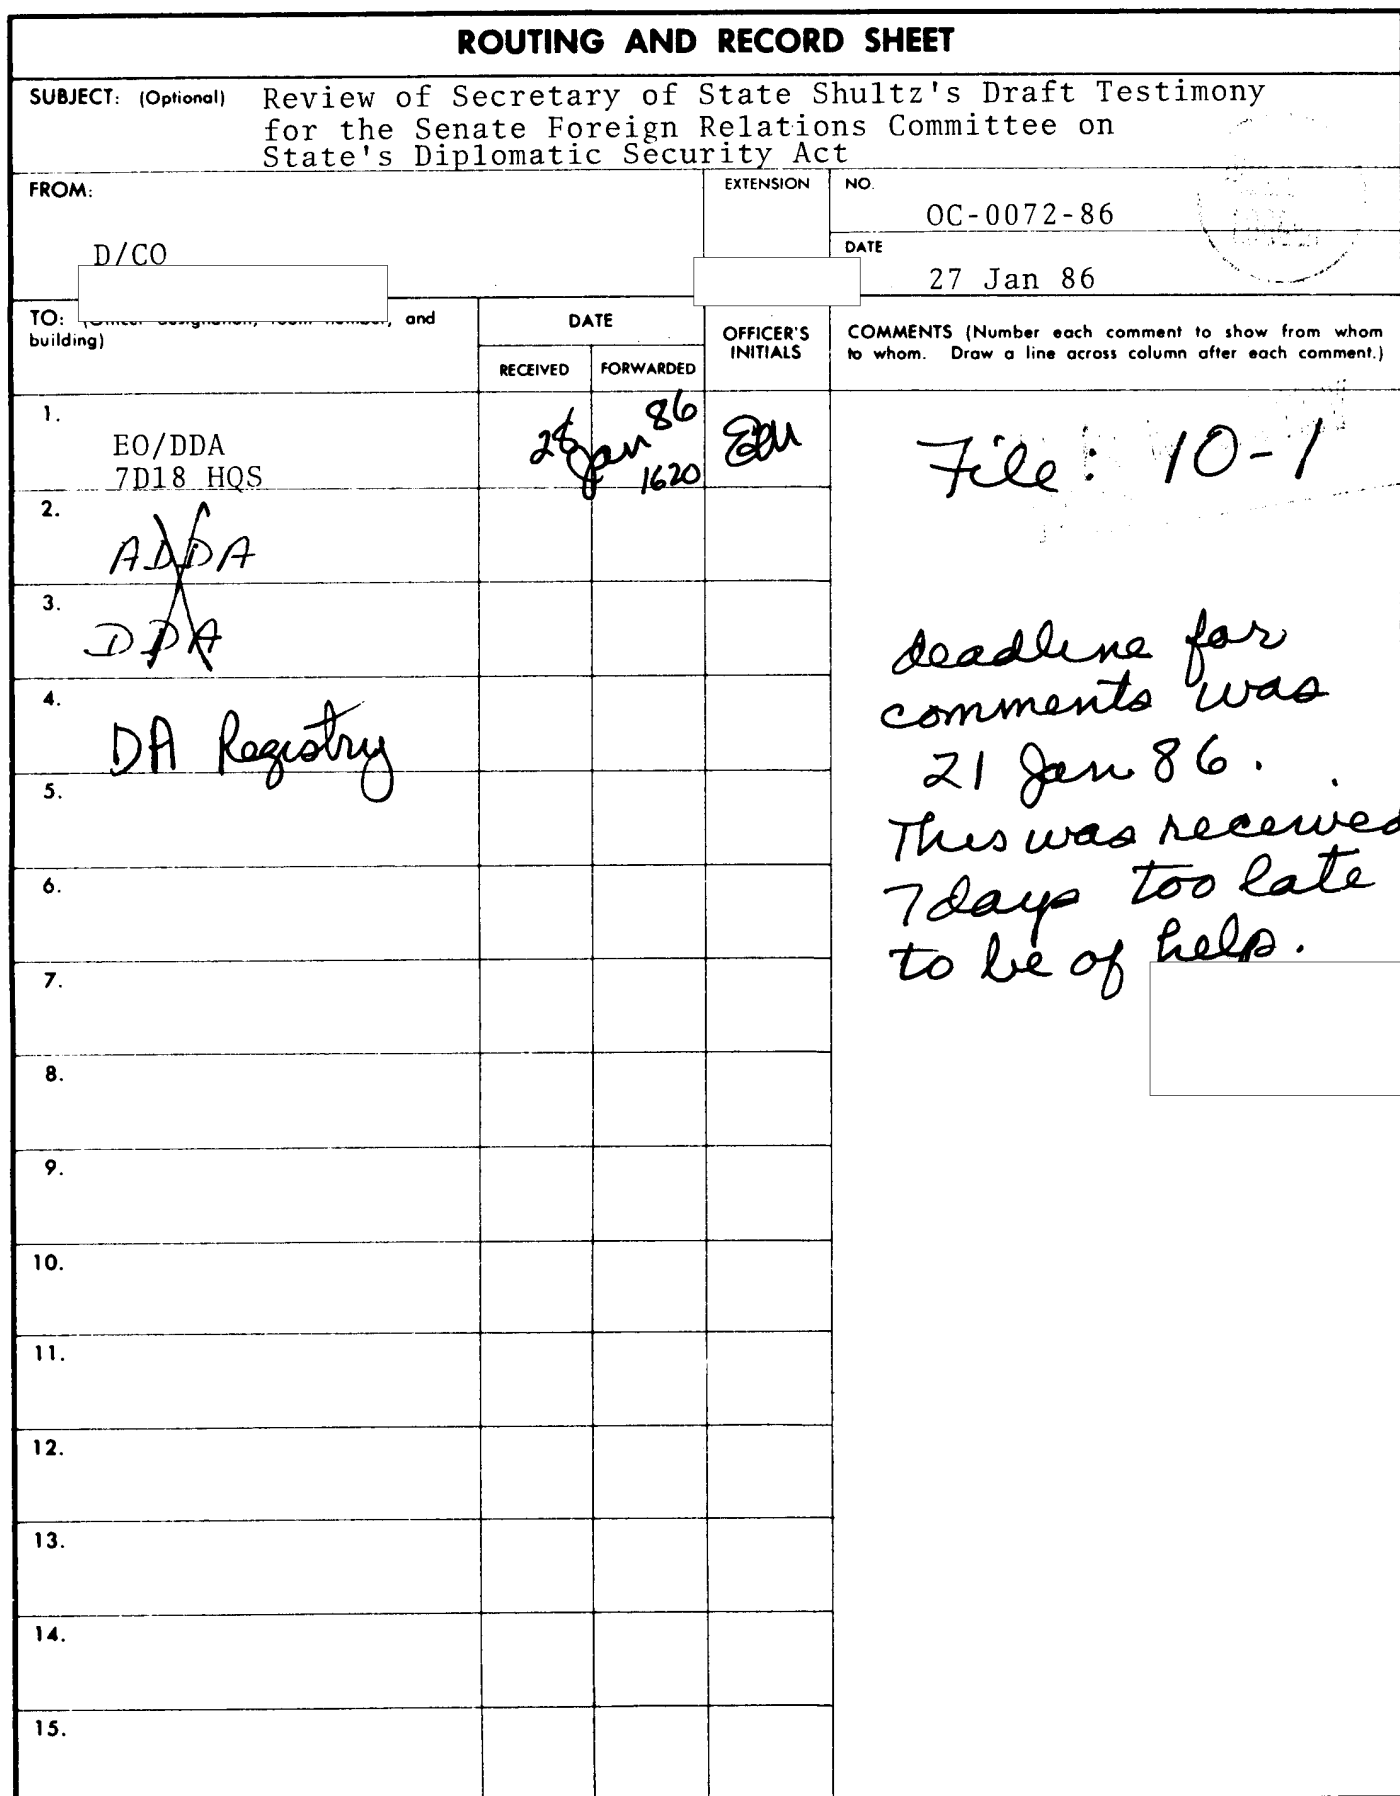 ROUTING AND RECORD SHEET
SUBJECT: (Optional) Review of Secretary of State Shultz's Draft Testimony
for the Senate Foreign Relations Committee on
State's Diplomatic Security Act
FROM:
D/CO
EXTENSION
NO.
OC-0072-86
DATE
27 Jan 86
TO: (Officer designation, room number, and
building)
DATE
RECEIVED
FORWARDED
OFFICER'S
INITIALS
COMMENTS (Number each comment to show from whom
to whom. Draw a line across column after each comment.)
1.
EO/DDA
7D18 HQS
28 Jan 86
1620
File: 10-1
2.
ADDA
3.
DDA
4.
DA Registry
deadline for
comments was
21 Jan 86.
This was received
7 days too late
to be of help.
5.
6.
7.
8.
9.
10.
11.
12.
13.
14.
15.